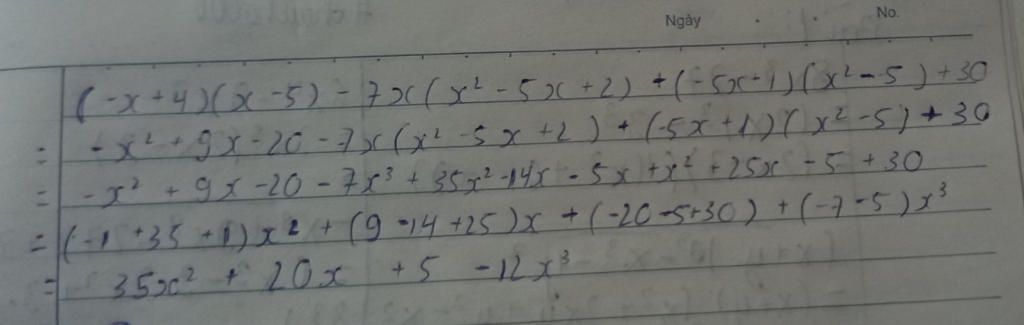 Ngày . . No.
(-x+4)(x-5) - 7x(x² - 5x + 2) + (-5x+1)(x² - 5) + 30
= -x² + 9x - 20 - 7x(x² - 5x + 2) + (-5x + 1)(x² - 5) + 30
= -x² + 9x - 20 - 7x³ + 35x² - 14x - 5x + x² + 25x - 5 + 30
= (-1 + 35 + 1)x² + (9 - 14 + 25)x + (-20 - 5 + 30) + (-7 - 5)x³
= 35x² + 20x + 5 - 12x³